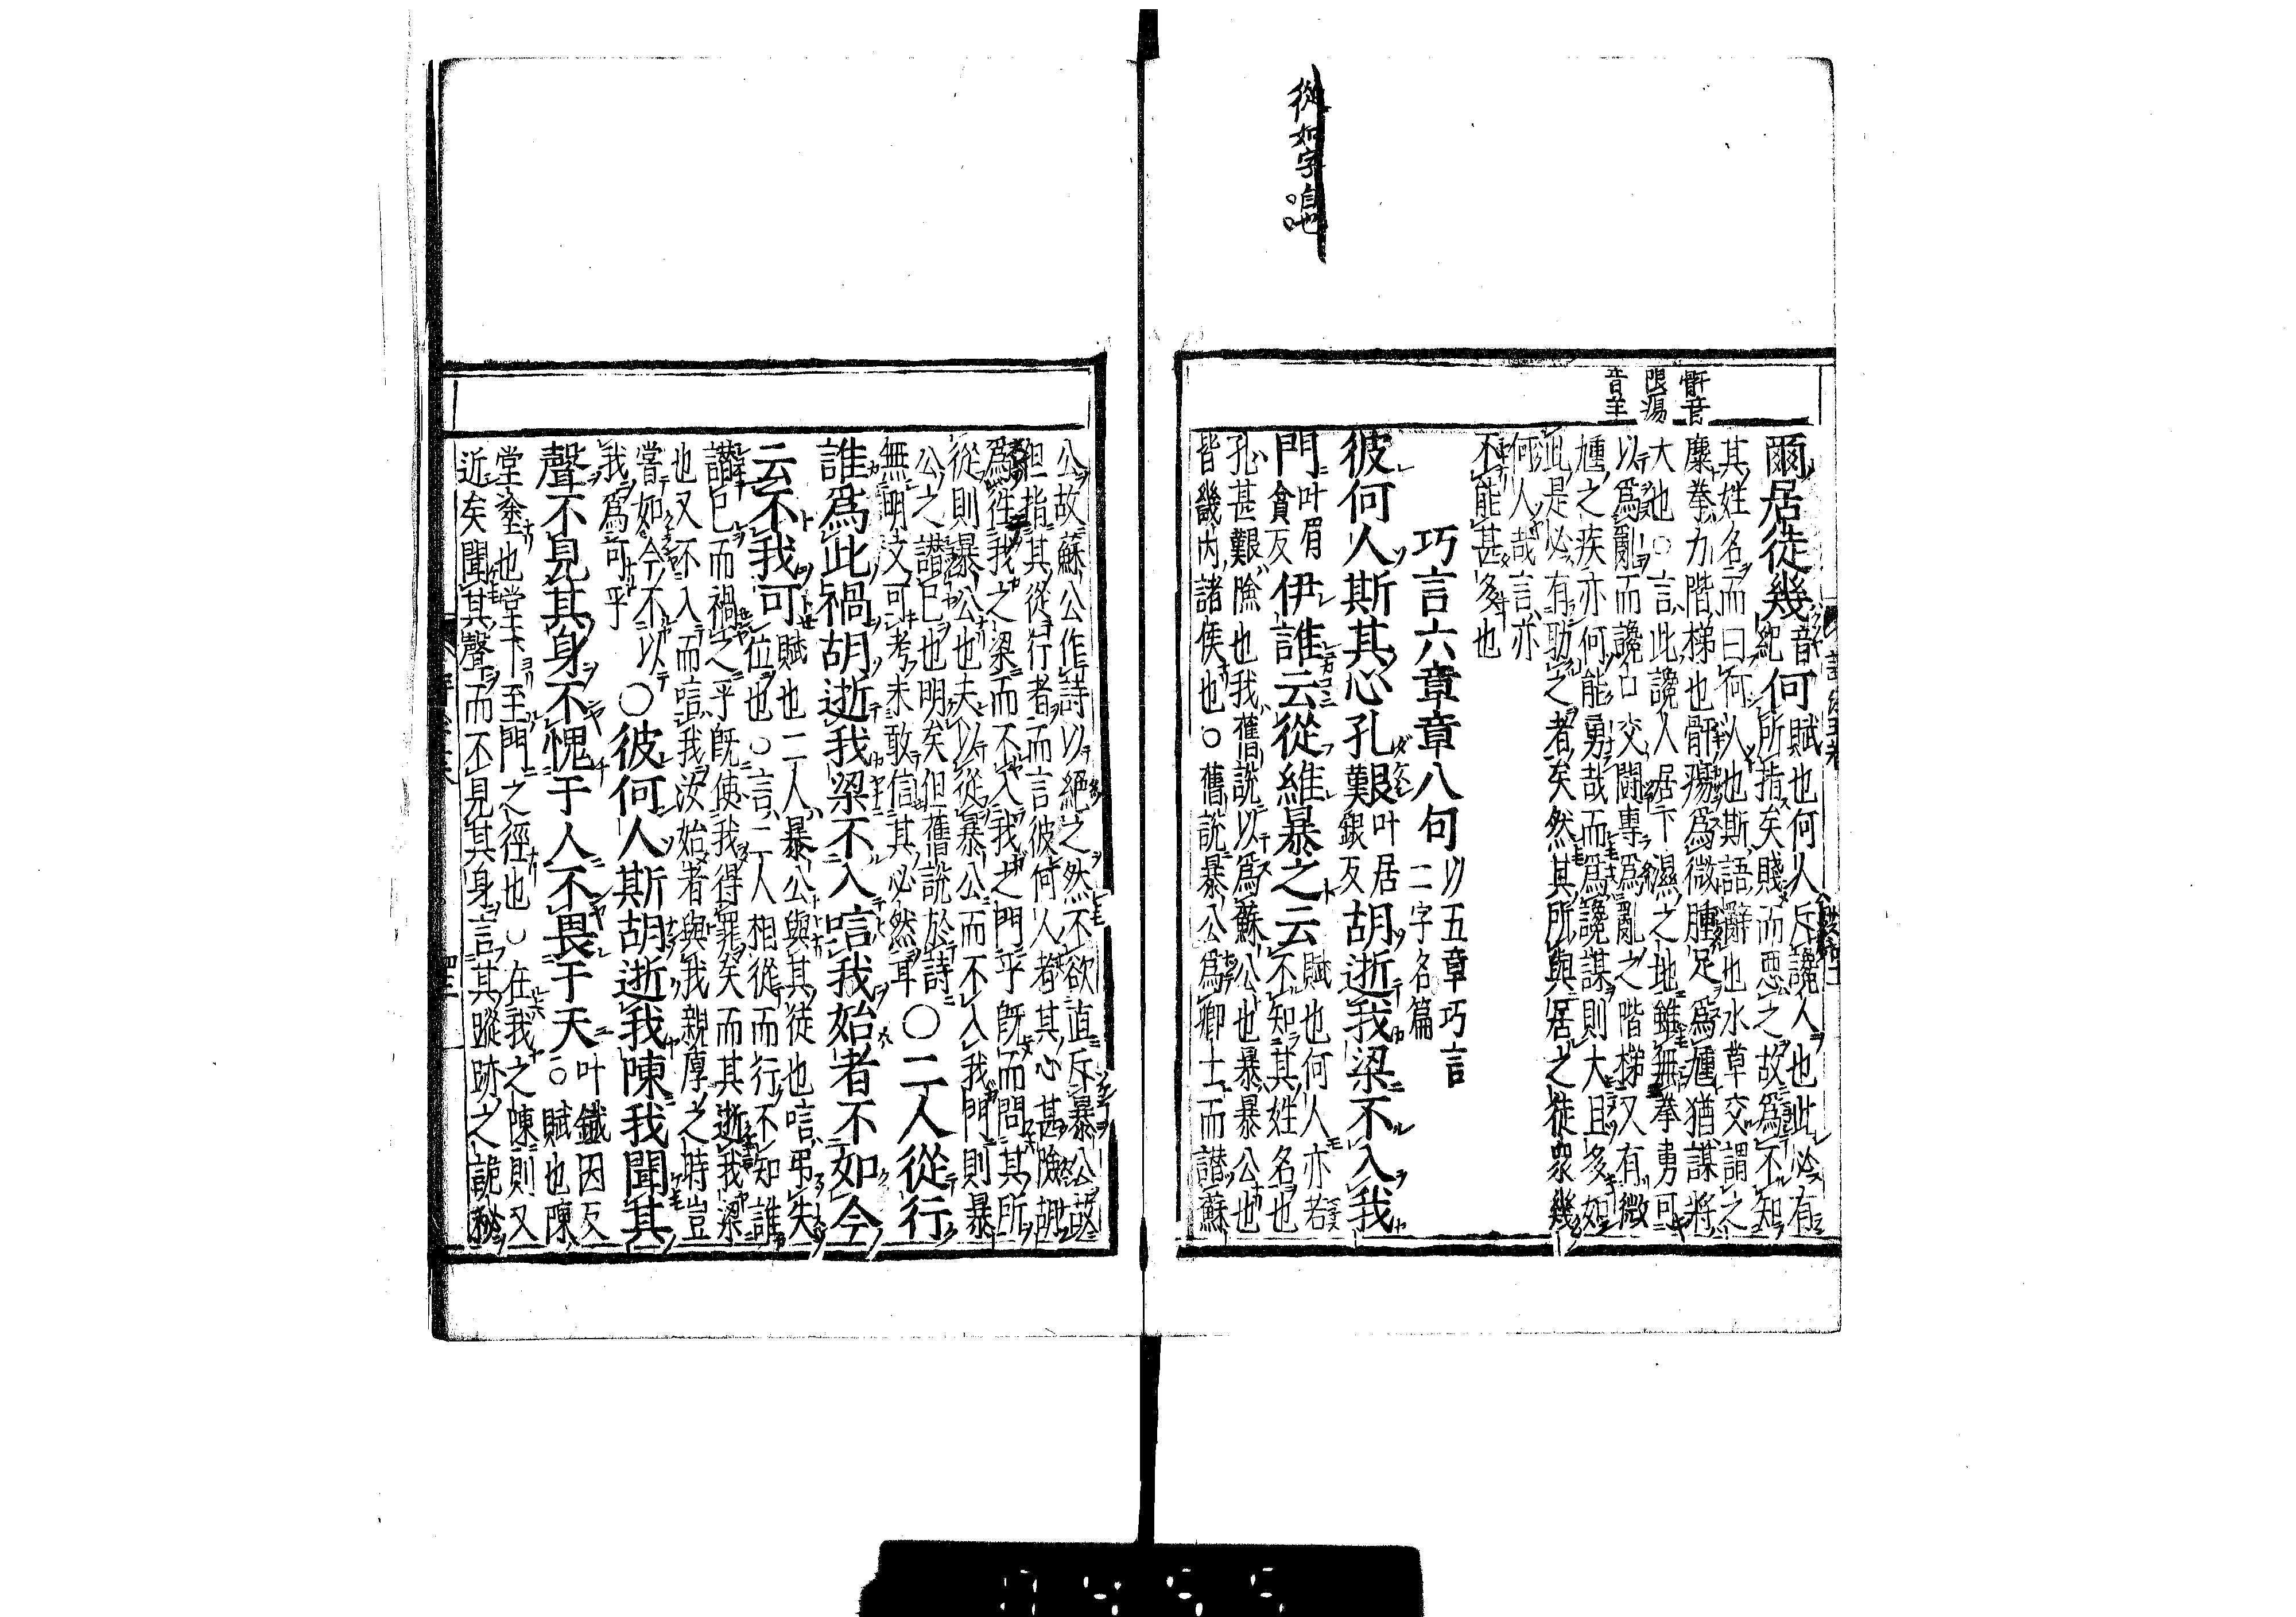 從如字自也
骭音
限瘍
音羊
爾居徒幾音紀何賦也何人斥讒人也此必有
所指矣賤而惡之故為不知
其姓名而曰何人也斯語辭也水草交謂之
麋拳力階梯也骭瘍為微腫足為尰猶謀將
大也○言此讒人居下濕之地雖無拳勇可
以為亂而讒口交鬪專為亂之階梯又有微
尰之疾亦何能勇哉而為讒謀則大且多如
此是必有助之者矣然其所與居之徒衆幾
何人哉言亦
不能甚多也
巧言六章章八句以五章巧言
二字名篇
彼何人斯其心孔艱叶居
銀反胡逝我梁不入我
門叶眉
貧反伊誰云從維暴之云賦也何人亦若
不知其姓名也
孔甚艱險也我舊說以為蘇公也暴暴公也
皆畿内諸侯也○舊說暴公為卿士而譖蘇
公故蘇公作詩以絕之然不欲直斥暴公故
但指其從行者而言彼何人者其心甚險胡
為往我之梁而不入我之門乎既而問其所
從則暴公也夫以從暴公而不入我門則暴
公之譖已也明矣但舊說於詩
無明文可考未敢信其必然耳○二人從行
誰為此禍胡逝我梁不入唁我始者不如今
云不我可賦也二人暴公與其徒也唁弔失
位也○言二人相從而行不知誰
譖已而禍之乎既使我得罪矣而其逝我梁
也又不入而唁我汝始者與我親厚之時豈
嘗如今不以
我為可乎○彼何人斯胡逝我陳我聞其
聲不見其身不愧于人不畏于天叶鐵因反
○賦也陳
堂塗也堂下至門之徑也○在我之陳則又
近矣聞其聲而不見其身言其蹤跡之詭秘